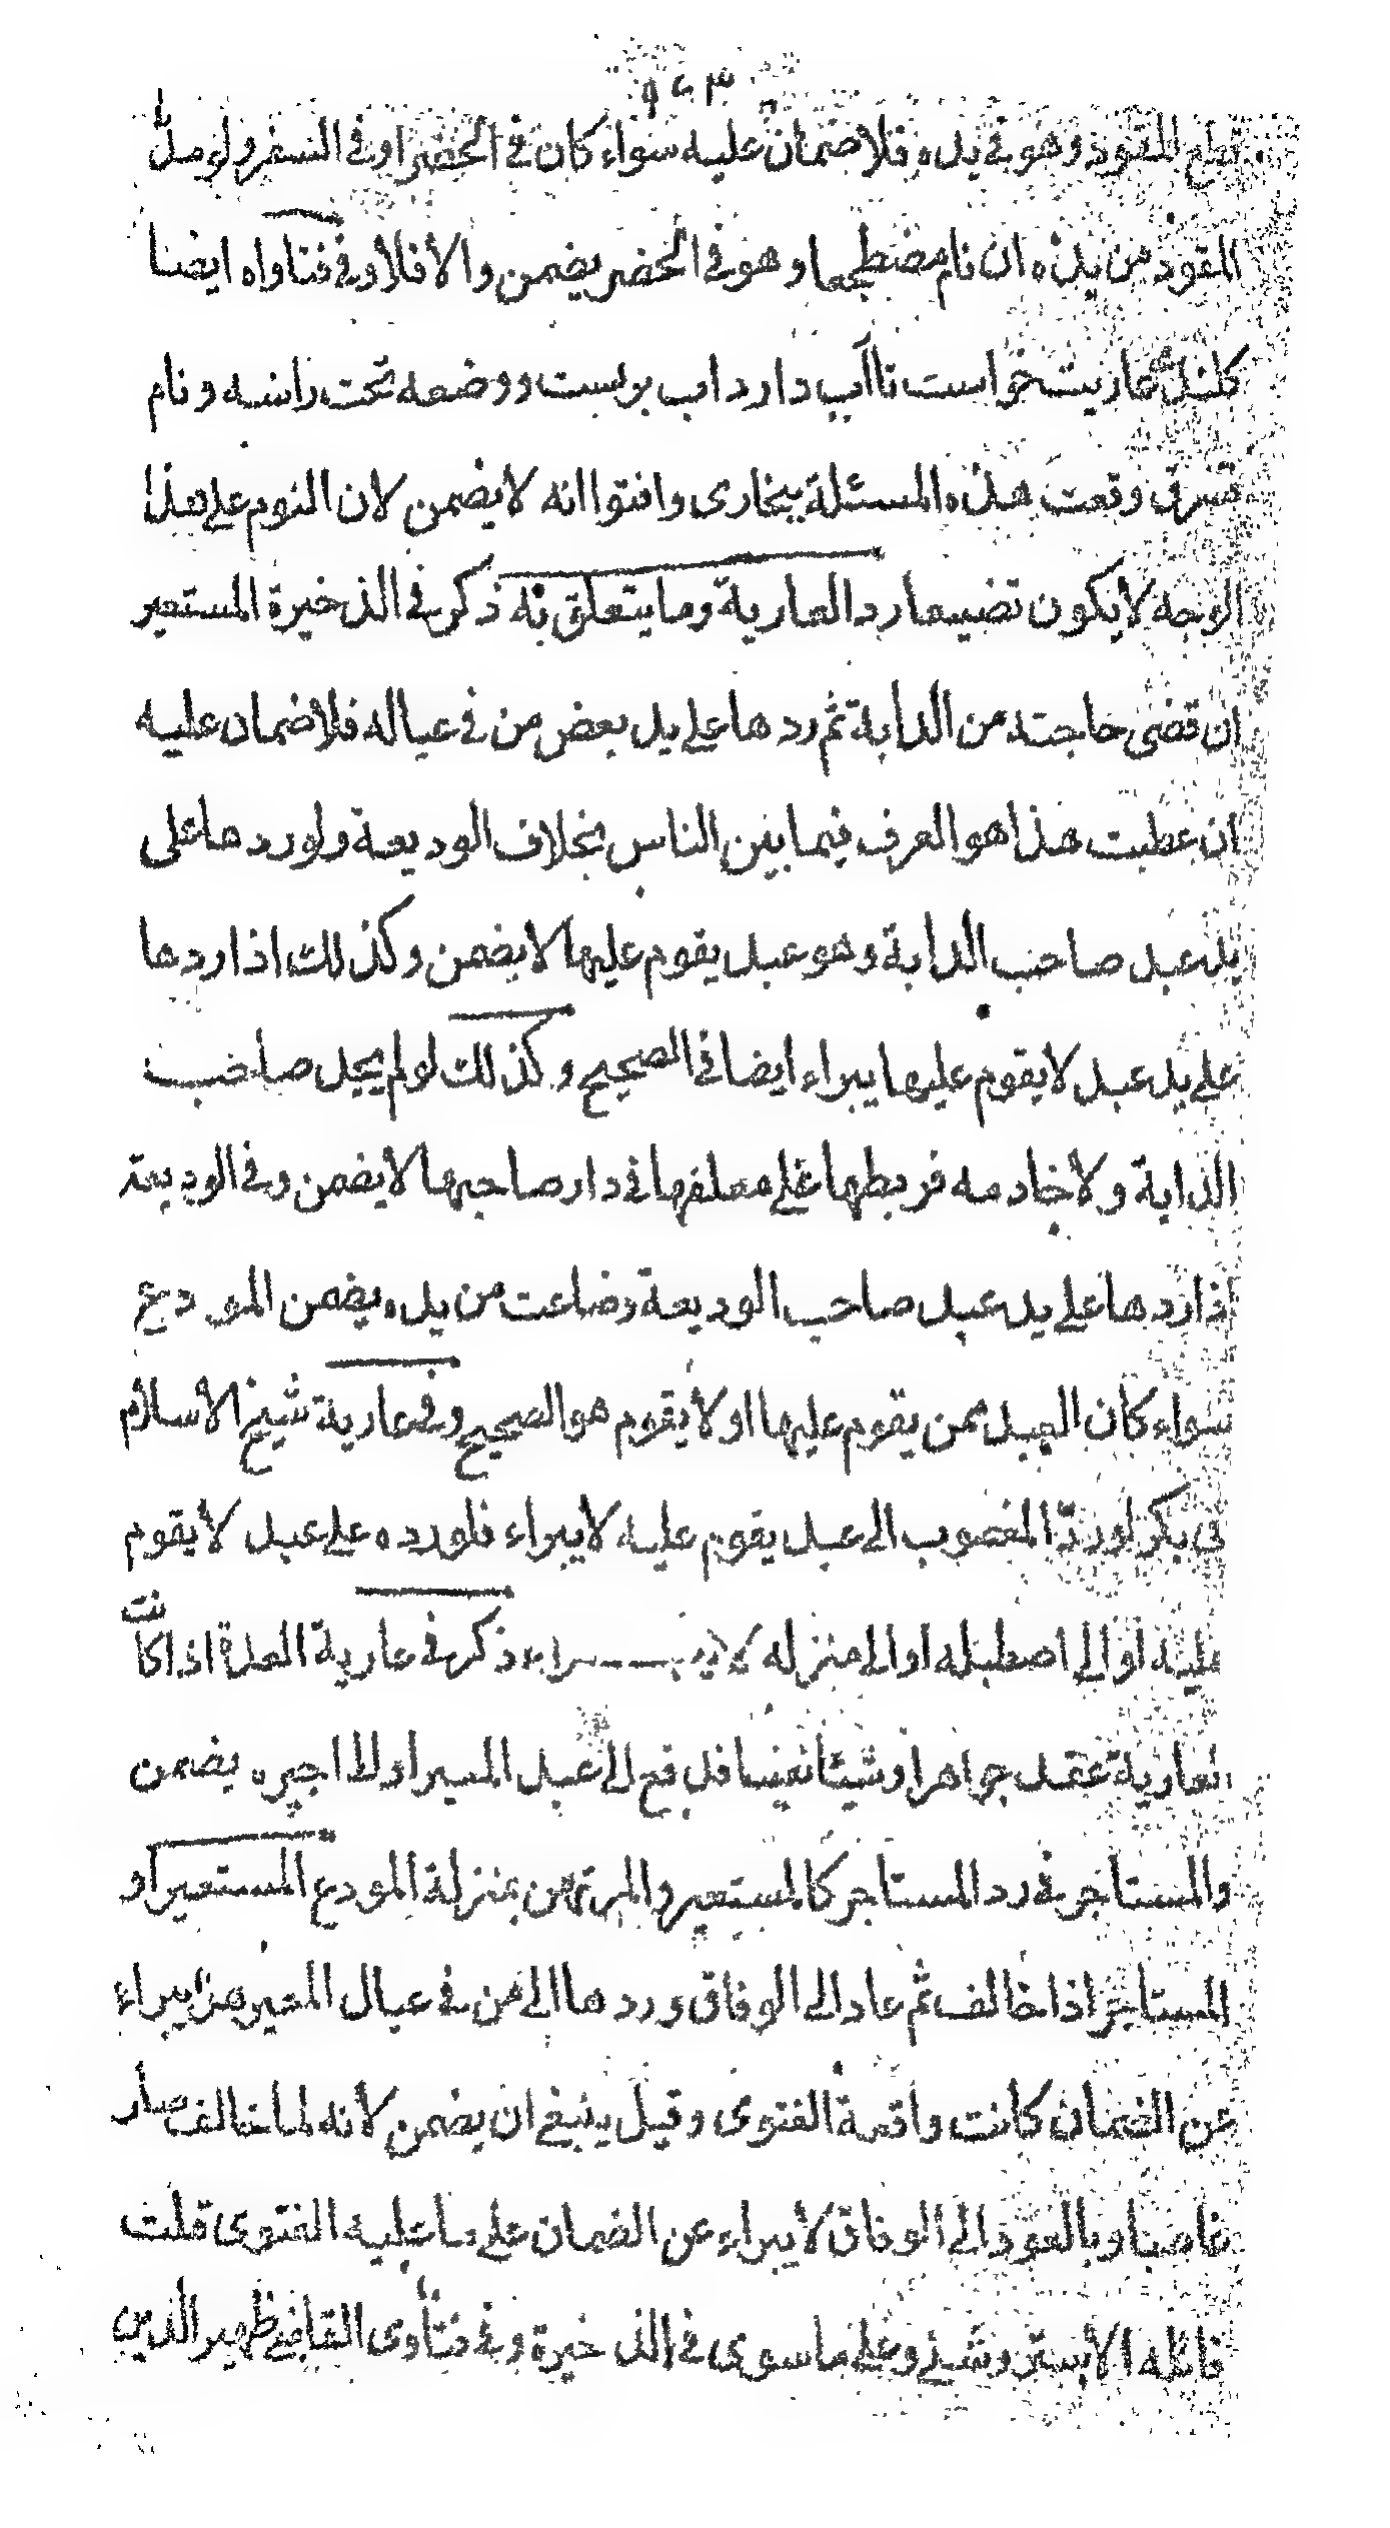 قطع المقود وهو في يده فلا ضمان عليه سواء كان في الحضر او في السفر ولو
المقود من يده ان نام مضطجعا وهو في الحضر يضمن والا فلا وفي فتاواه ايضا
عاريت خواست تا آب دارد اب بربست ووضعه تحت راسه ونام
فسرق وقعت هذه المسئلة ببخارى وافتوا انه لا يضمن لان النوم على هذا
الوجه لا يكون تضييعا رد العارية وما يتعلق به ذكر في الذخيرة المستعير
ان قضى حاجته من الدابة ثم ردها على يد بعض من في عياله فلا ضمان عليه
ان عطبت هذا هو العرف فيما بين الناس بخلاف الوديعة ولو ردها على
يد عبد صاحب الدابة وهو عبد يقوم عليها لا يضمن وكذلك اذا ردها
على يد عبد لا يقوم عليها يبراء ايضا في الصحيح وكذلك لو لم يجد صاحب
الدابة ولا خادمه فربطها على معلفها في دار صاحبها لا يضمن وفي الوديعة
اذا ردها على يد عبد صاحب الوديعة وضاعت من يده يضمن المودع
سواء كان العبد ممن يقوم عليها او لا يقوم هو الصحيح وفي عارية شيخ الاسلام
ابى بكر لو رد المغصوب الى عبد يقوم عليه لا يبراء فلو رده على عبد لا يقوم
عليه او الى اصطبله او الى منزله لا يبراء ذكر في عارية العدة اذا كانت
العارية عقد جواهر او شيئا نفيسا فدفع الى عبد المعير او الى اجيره يضمن
والمستاجر في رد المستاجر كالمستعير والمرتهن بمنزلة المودع المستعير او
المستاجر اذا خالف ثم عاد الى الوفاق وردها الى من في عيال المعير هل يبراء
عن الضمان كانت واقعة الفتوى وقيل ينبغي ان يضمن لانه لما خالف صار
غاصبا وبالعود الى الوفاق لا يبراء عن الضمان على ما عليه الفتوى قلت
قائله الاستروشني وعلى ما سوى في الذخيرة وفي فتاوى القاضي ظهير الدين